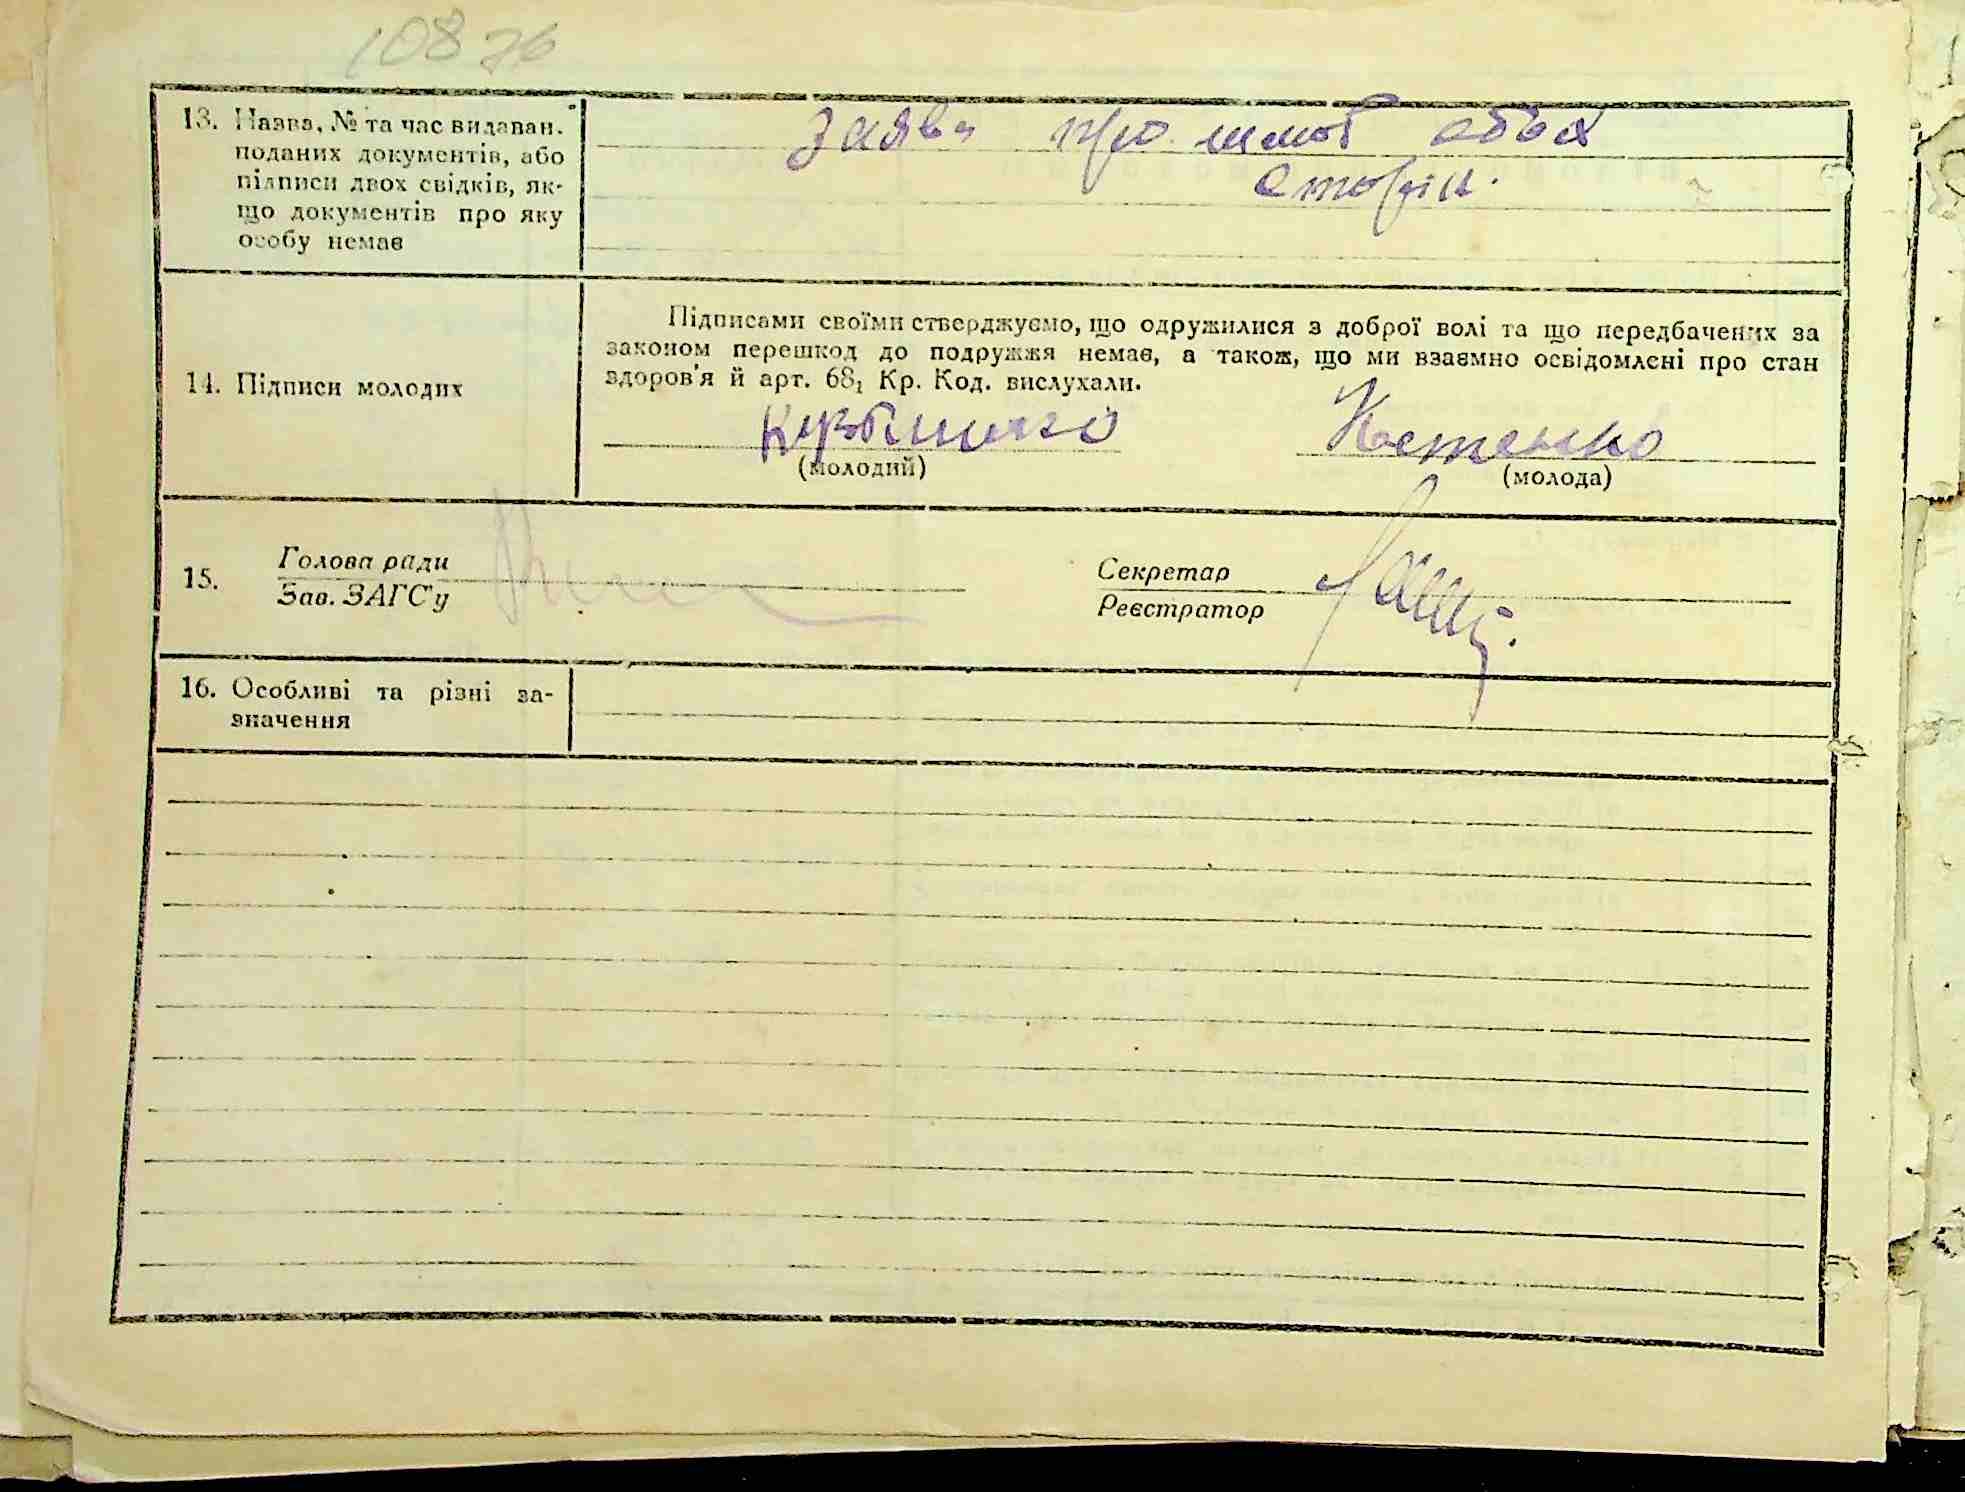 10876
13. Назва, № та час видаван.
поданих документів, або
підписи двох свідків, як-
що документів про яку
особу немає
заява про шлюб обох
сторін.
14. Підписи молодих
Підписами своїми стверджуємо, що одружилися з доброї волі та що передбачених за
законом перешкод до подружжя немає, а також, що ми взаємно освідомлені про стан
здоров'я й арт. 68₁ Кр. Код. вислухали.
Костенко
(молодий)
(молода)
15.
Голова ради
Зав. ЗАГС'у
Секретар
Реєстратор
16. Особливі та різні за-
значення